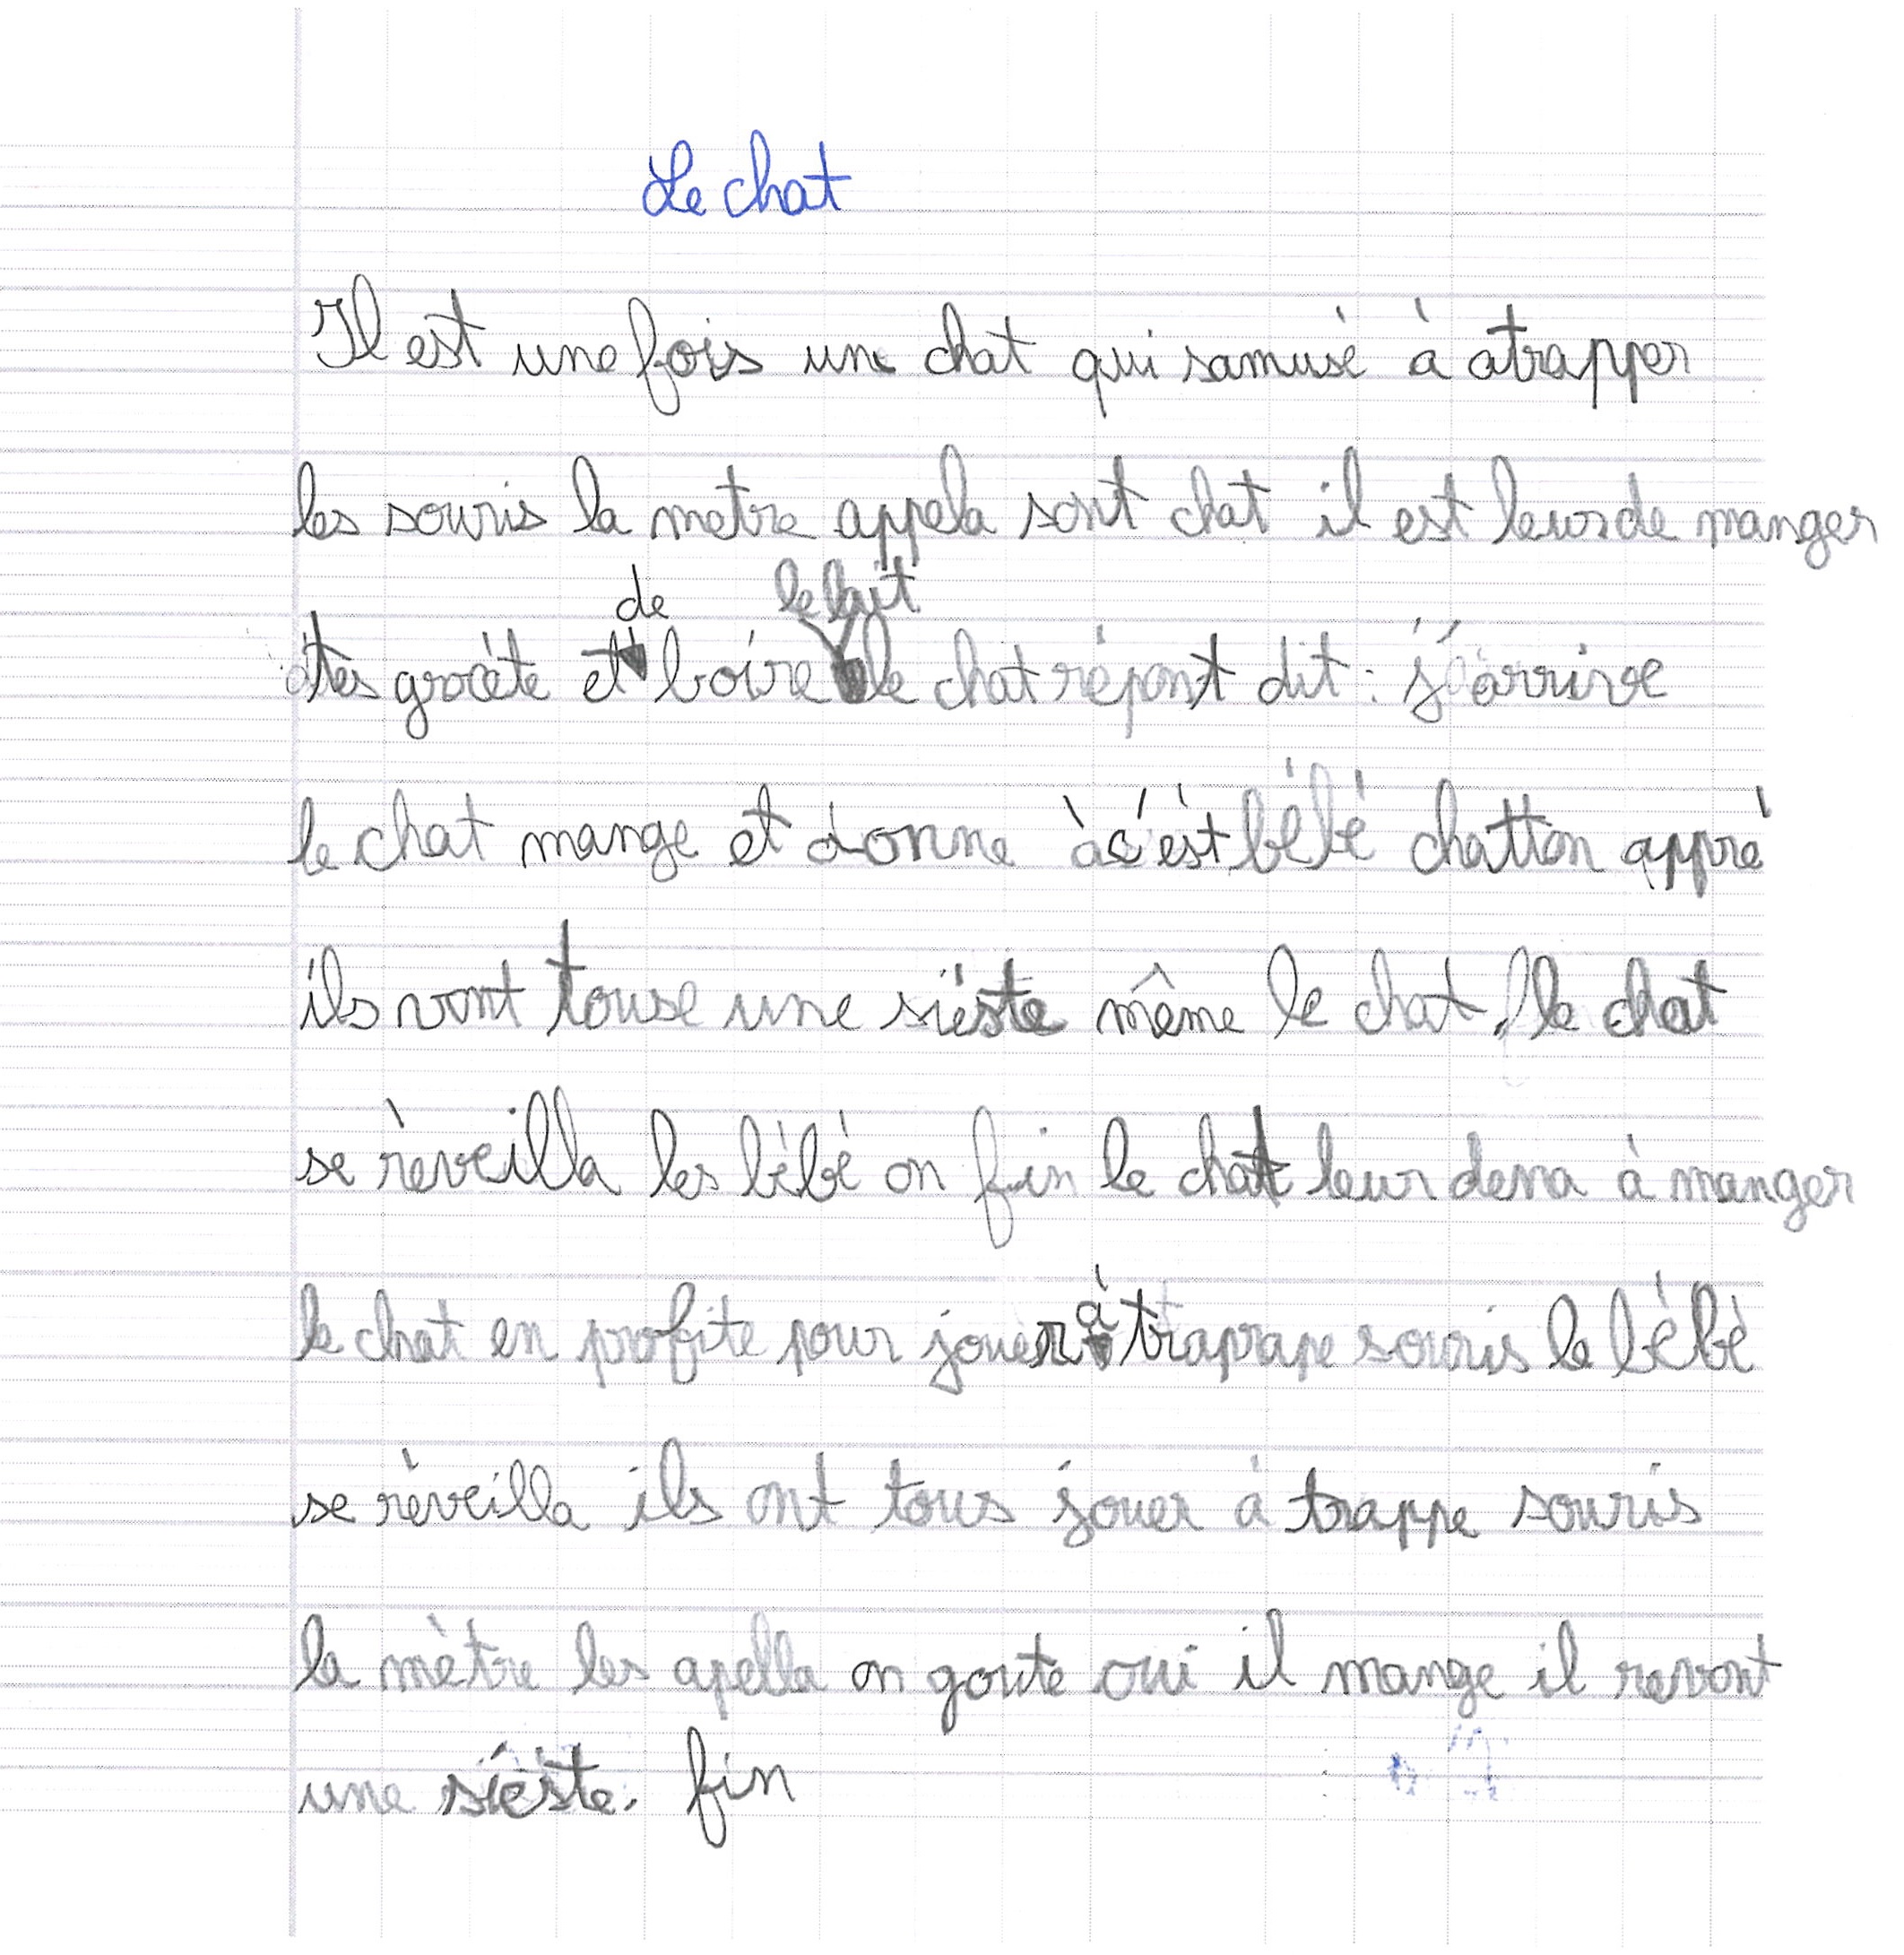 Le chat
Il est une fois un chat qui samusé à atrapper
les souris la metre appela sont chat il est leurs de manger
tes grocète et de boire le lait le chat répont dit : j'arrive
le chat mange et donne à c'est bébé chatton appré
ils vont touse une siéste même le chat, le chat
se réveilla les bébé on fin le chat leur dena à manger
le chat en profite pour jouer à traprape souris le bébé
se réveilla ils ont tous jouer à trappe souris
la mètre les apella on goute oui il mange il revont
une siéste. fin